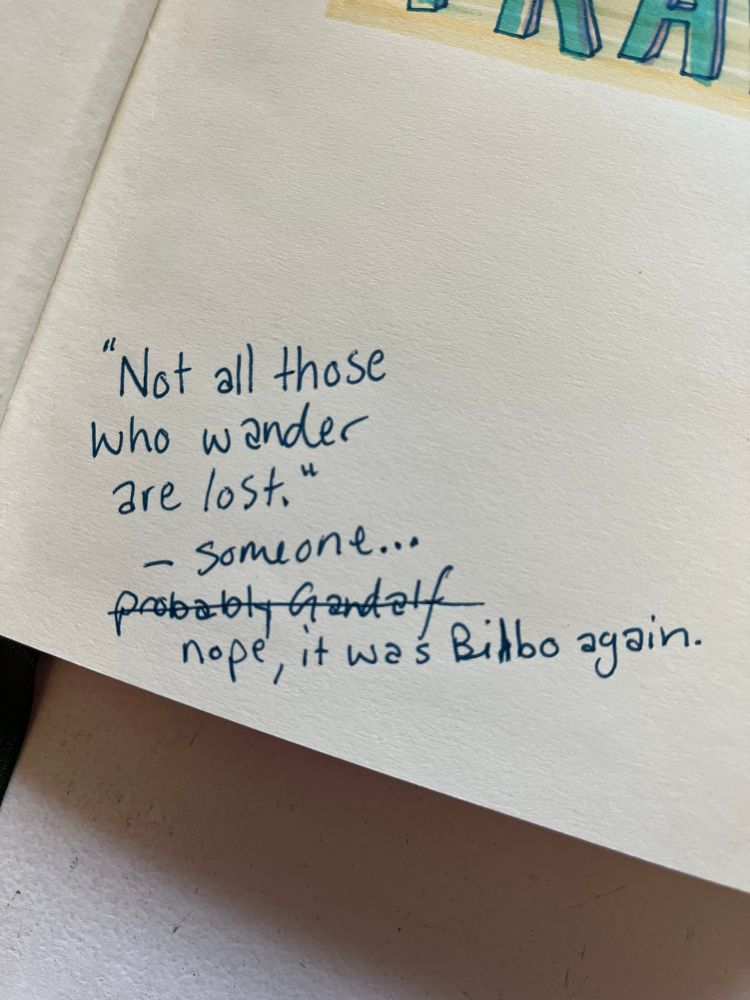 "Not all those
who wander
are lost."
– someone...
probably Gandalf
nope, it was Bilbo again.